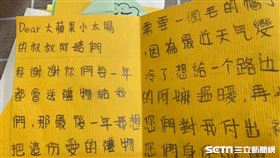 Dear大蘋果小太陽
的叔叔阿姨們
謝謝你們每一年
都會送禮物給我
們,那最後一年我想
把這份愛的禮物
需要一個毛的帽
因為最近天氣變
冷了,想給一個路邊
的阿嬤溫暖,再
您們對我付出
您們自
三立新聞網
setn.com